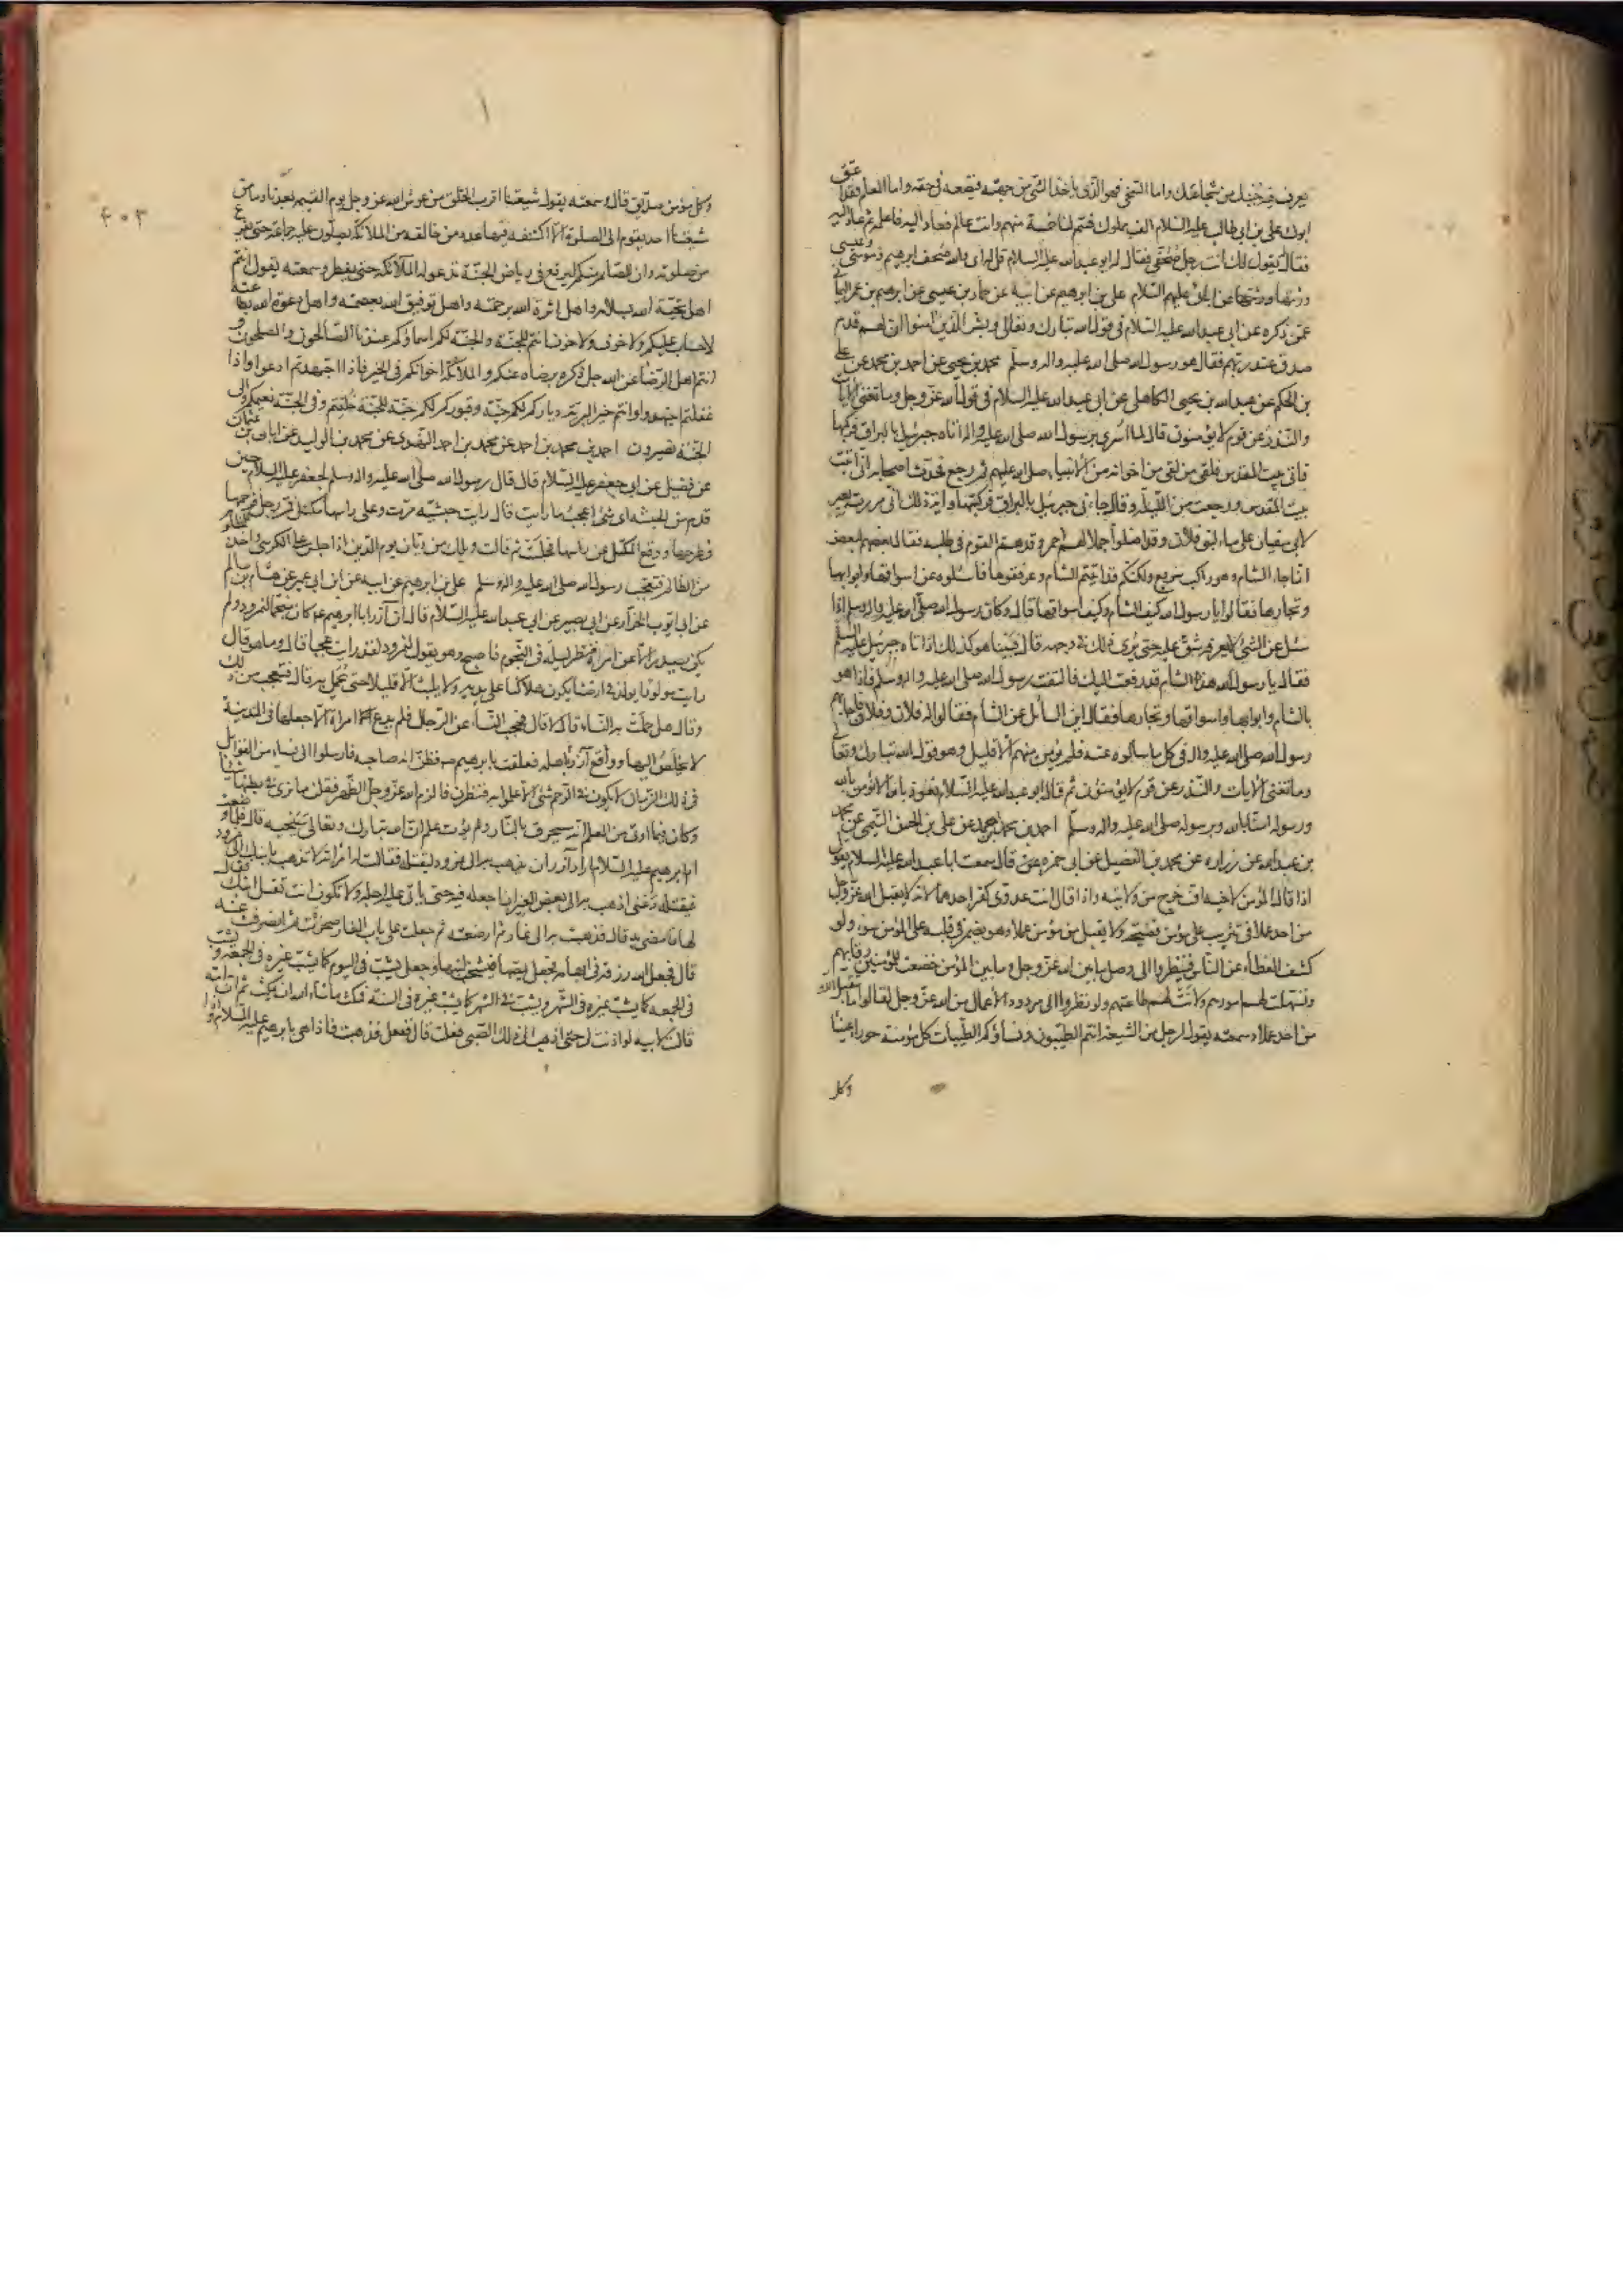 يعرف فيه خيل من شجاعتك واما السخي فهو الذي ياخذ الشئ من جهته فيضعه في حقه واما العلم فقد اعتق
ابوك علي بن ابي طالب عليه السلام الف مملوك فسم لنا خمسة منهم وانت عالم فعاد اليه فاعلمه ثم عاد اليه
فقال يقول لك انت رجل صحفي فقال له ابو عبد الله عليه السلام قل له اي والله صحف ابرهيم وموسى وعيسى
ورثتها عن ابائي عليهم السلام علي بن ابرهيم عن ابيه عن حماد بن عيسى عن ابرهيم بن عمر اليماني
عمن ذكره عن ابي عبد الله عليه السلام في قول الله تبارك وتعالى وبشر الذين امنوا ان لهم قدم
صدق عند ربهم فقال هو رسول الله صلى الله عليه واله وسلم محمد بن يحيى عن احمد بن محمد عن علي
بن الحكم عن عبد الله بن يحيى الكاهلي عن ابي عبد الله عليه السلام في قول الله عز وجل وما تغني الايات
والنذر عن قوم لا يؤمنون قال لما اسري برسول الله صلى الله عليه واله اتاه جبرئيل بالبراق فركبها
فاتى بيت المقدس فلقي من لقي من اخوانه من الانبياء صلى الله عليهم ثم رجع فحدث اصحابه اني اتيت
بيت المقدس ورجعت من الليلة وقد جاءني جبرئيل بالبراق فركبتها واية ذلك اني مررت بعير
لابي سفيان على ماء لبني فلان وقد اضلوا جملا لهم احمر وقد هم القوم في طلبه فقال بعضهم لبعض
انما جاء الشام وهو راكب سريع ولكنكم قد اتيتم الشام وعرفتموها فاسئلوه عن اسواقها وابوابها
وتجارها فقالوا يا رسول الله كيف الشام وكيف اسواقها قال وكان رسول الله صلى الله عليه واله وسلم اذا
سئل عن الشئ لا يعرفه شق عليه حتى يرى ذلك في وجهه قال فبينا هو كذلك اذ اتاه جبرئيل عليه السلم
فقال يا رسول الله هذه الشام قد رفعت لك فالتفت رسول الله صلى الله عليه واله وسلم فاذا هو
بالشام وابوابها واسواقها وتجارها فقال اين السائل عن الشام فقالوا له فلان وفلان فاجابهم
رسول الله صلى الله عليه واله في كل ما سالوه عنه فلم يؤمن منهم الا قليل وهو قول الله تبارك وتعالى
وما تغني الايات والنذر عن قوم لا يؤمنون ثم قال ابو عبد الله عليه السلام نعوذ بالله ان لا نؤمن بالله
ورسوله امنا بالله وبرسوله صلى الله عليه واله وسلم احمد بن محمد بن احمد عن علي بن الحسن التيمي عن محمد
بن عبد الله عن زراره عن محمد بن الفضيل عن ابي حمزه قال سمعت ابا عبد الله عليه السلام يقول
اذا قال المؤمن لاخيه اف خرج من ولايته واذا قال انت عدوي كفر احدهما لانه لا يقبل الله عز وجل
من احد عملا في تثريب على مؤمن نصيحة ولا يقبل من مؤمن عملا وهو يضمر في قلبه على المؤمن سوء ولو
كشف الغطاء عن الناس فينظروا الى وصل ما بين الله عز وجل وما بين المؤمن خضعت للمؤمنين رقابهم
وتسهلت لهم امورهم ولانت لهم طاعتهم ولو نظروا الى مردود الاعمال من الله عز وجل لقالوا ما يتقبل الله
من احد عملا وسمعته يقول لرجل من الشيعة انتم الطيبون ونساؤكم الطيبات كل مؤمنة حوراء عيناء
وكل
٤٠٣
وكل مؤمن صديق قال وسمعته يقول شيعتنا اقرب الخلق من عرش الله عز وجل يوم القيمة بعدنا وما من
شيعتنا احد يقوم الى الصلوة الا اكتنفه فيها عدد من خالفه من الملائكة يصلون عليه جماعة حتى يفرغ
من صلوته وان الصائم منكم ليرتع في رياض الجنة تدعو له الملائكة حتى يفطر وسمعته يقول انتم
اهل تحية الله بسلامه واهل اثرة الله برحمته واهل توفيق الله بعصمته واهل دعوة الله بطاعته
لا حساب عليكم ولا خوف ولا حزن انتم للجنة والجنة لكم اسماؤكم عندنا الصالحون والمصلحون و
انتم اهل الرضا عن الله جل ذكره برضاه عنكم والملائكة اخوانكم في الخير فاذا اجتهدتم ادعوا واذا
غفلتم اجتهدوا وانتم خير البرية دياركم لكم جنة وقبوركم لكم جنة للجنة خلقتم وفي الجنة نعيمكم والى
الجنة تصيرون احمد بن محمد بن احمد عن محمد بن احمد النهدي عن محمد بن الوليد عن ابان بن عثمان
عن فضيل عن ابي جعفر عليه السلام قال قال رسول الله صلى الله عليه واله وسلم لجعفر عليه السلام حين
قدم من الحبشة اي شئ اعجب ما رايت قال رايت حبشية مرت وعلى راسها مكتل فمر رجل فزحمها
فطرحها ووقع المكتل عن راسها فجلست ثم قالت ويل لك من ديان يوم الدين اذا جلس على الكرسي واخذ للمظلوم
من الظالم فتعجب رسول الله صلى الله عليه واله وسلم علي بن ابرهيم عن ابيه عن ابن ابي عمير عن هشام بن سالم
عن ابي ايوب الخزاز عن ابي بصير عن ابي عبد الله عليه السلام قال ان آزر ابا ابرهيم ع كان منجما لنمرود ولم
يكن يصدر الا عن امره فنظر ليلة في النجوم فاصبح وهو يقول لنمرود لقد رايت عجبا قال وما هو قال
رايت مولودا يولد في ارضنا يكون هلاكنا على يديه ولا يلبث الا قليلا حتى يحمل به قال فتعجب من ذلك
وقال هل حملت به النساء قال لا قال فحجب النساء عن الرجال فلم يدع امراة الا جعلها في المدينة
لا يخلص اليها ووقع آزر باهله فعلقت بابرهيم ع فظن انه صاحبه فارسل الى نساء من القوابل
في ذلك الزمان لا يكون في الرحم شئ الا علموا به فنظرن فالزم الله عز وجل الظهر فقلن ما نرى في بطنها شيئا
وكان فيما اوتي من العلم انه سيحرق بالنار ولم يؤت علم ان الله تبارك وتعالى سينجيه قال فلما وضعت ام
ابرهيم عليه السلام اراد آزر ان يذهب به الى نمرود ليقتله فقالت له امراته لا تذهب بابنك الى نمرود
فيقتله دعني اذهب به الى بعض الغيران اجعله فيه حتى ياتي عليه اجله ولا تكون انت تقتل ابنك فقال
لها فامضي به قال فذهبت به الى غار ثم ارضعته ثم جعلت على باب الغار صخرة ثم انصرفت عنه
قال فجعل الله رزقه في ابهامه فجعل يمصها فيشخب لبنها وجعل يشب في اليوم كما يشب غيره في الجمعة ويشب
في الجمعه كما يشب غيره في الشهر ويشب في الشهر كما يشب غيره في السنة فمكث ما شاء الله ان يمكث ثم ان امه
قالت لابيه لو اذنت لي حتى اذهب الى ذلك الصبي فعلت قال فافعل فذهبت فاذا هي بابرهيم عليه السلام واذا